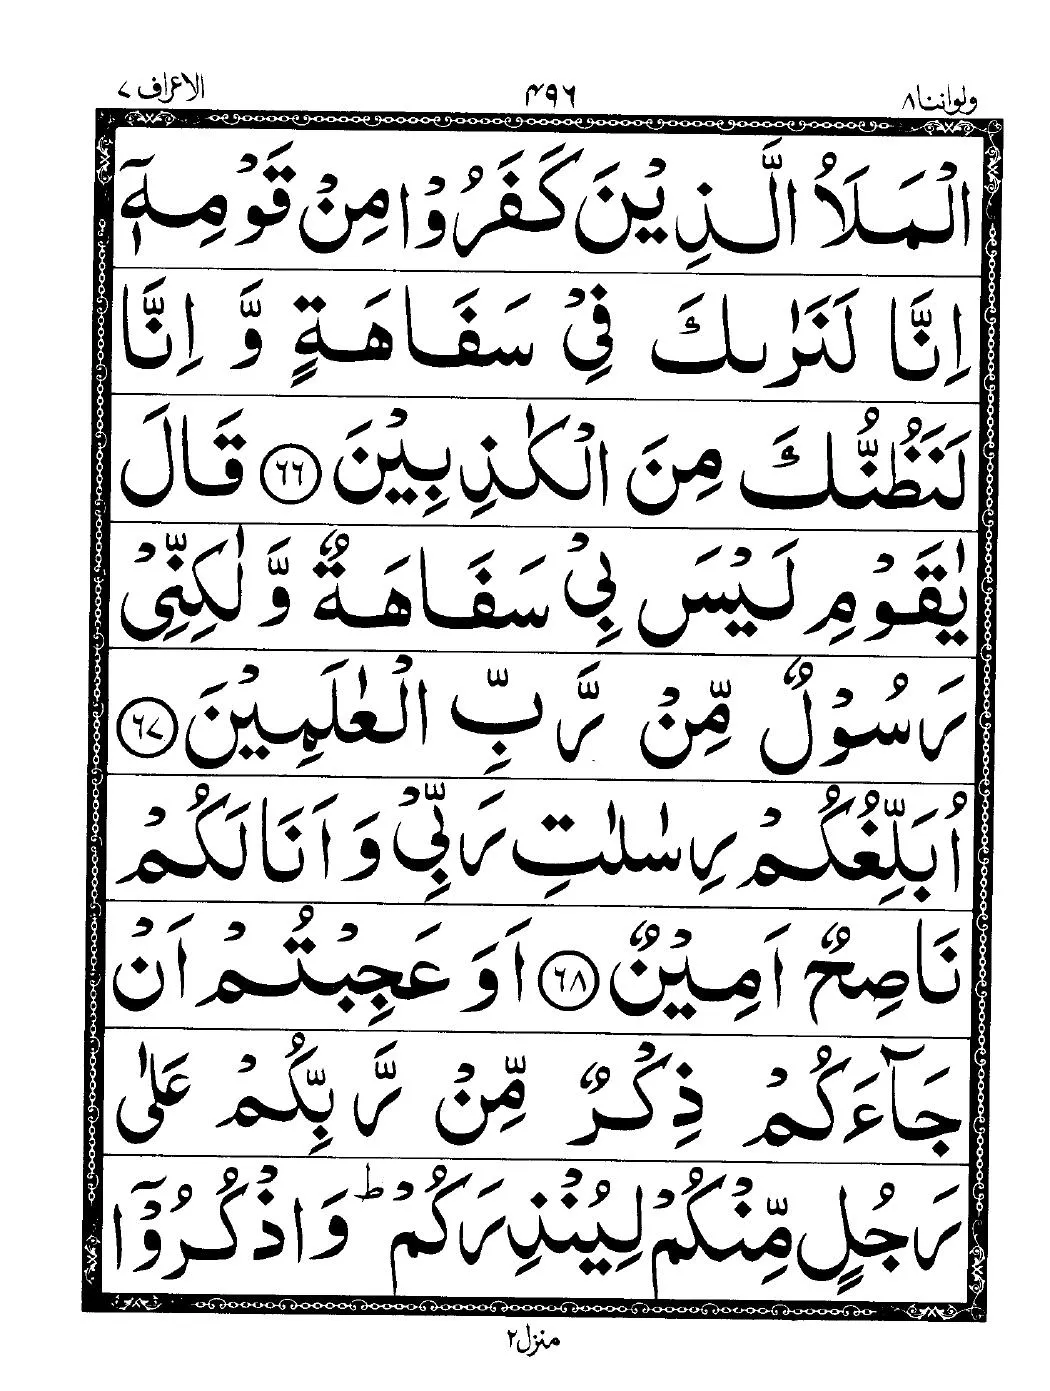 ولواننا ٨ ۴۹۶ الاعراف ٧
الْمَلَاُ الَّذِيْنَ كَفَرُوْا مِنْ قَوْمِهٖۤ
اِنَّا لَنَرٰىكَ فِيْ سَفَاهَةٍ وَّ اِنَّا
لَنَظُنُّكَ مِنَ الْكٰذِبِيْنَ ٦٦ قَالَ
يٰقَوْمِ لَيْسَ بِيْ سَفَاهَةٌ وَّلٰكِنِّيْ
رَسُوْلٌ مِّنْ رَّبِّ الْعٰلَمِيْنَ ٦٧
اُبَلِّغُكُمْ رِسٰلٰتِ رَبِّيْ وَ اَنَا لَكُمْ
نَاصِحٌ اَمِيْنٌ ٦٨ اَوَ عَجِبْتُمْ اَنْ
جَآءَكُمْ ذِكْرٌ مِّنْ رَّبِّكُمْ عَلٰى
رَجُلٍ مِّنْكُمْ لِيُنْذِرَكُمْ ؕ وَ اذْكُرُوْۤا
منزل ٢